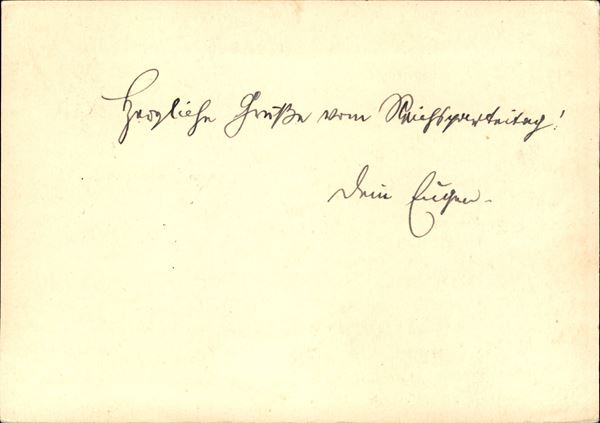 Herzliche Grüße vom Reichsparteitag!
Dein Eugen.